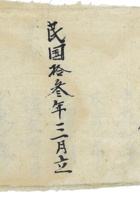 民国拾叁年三月立